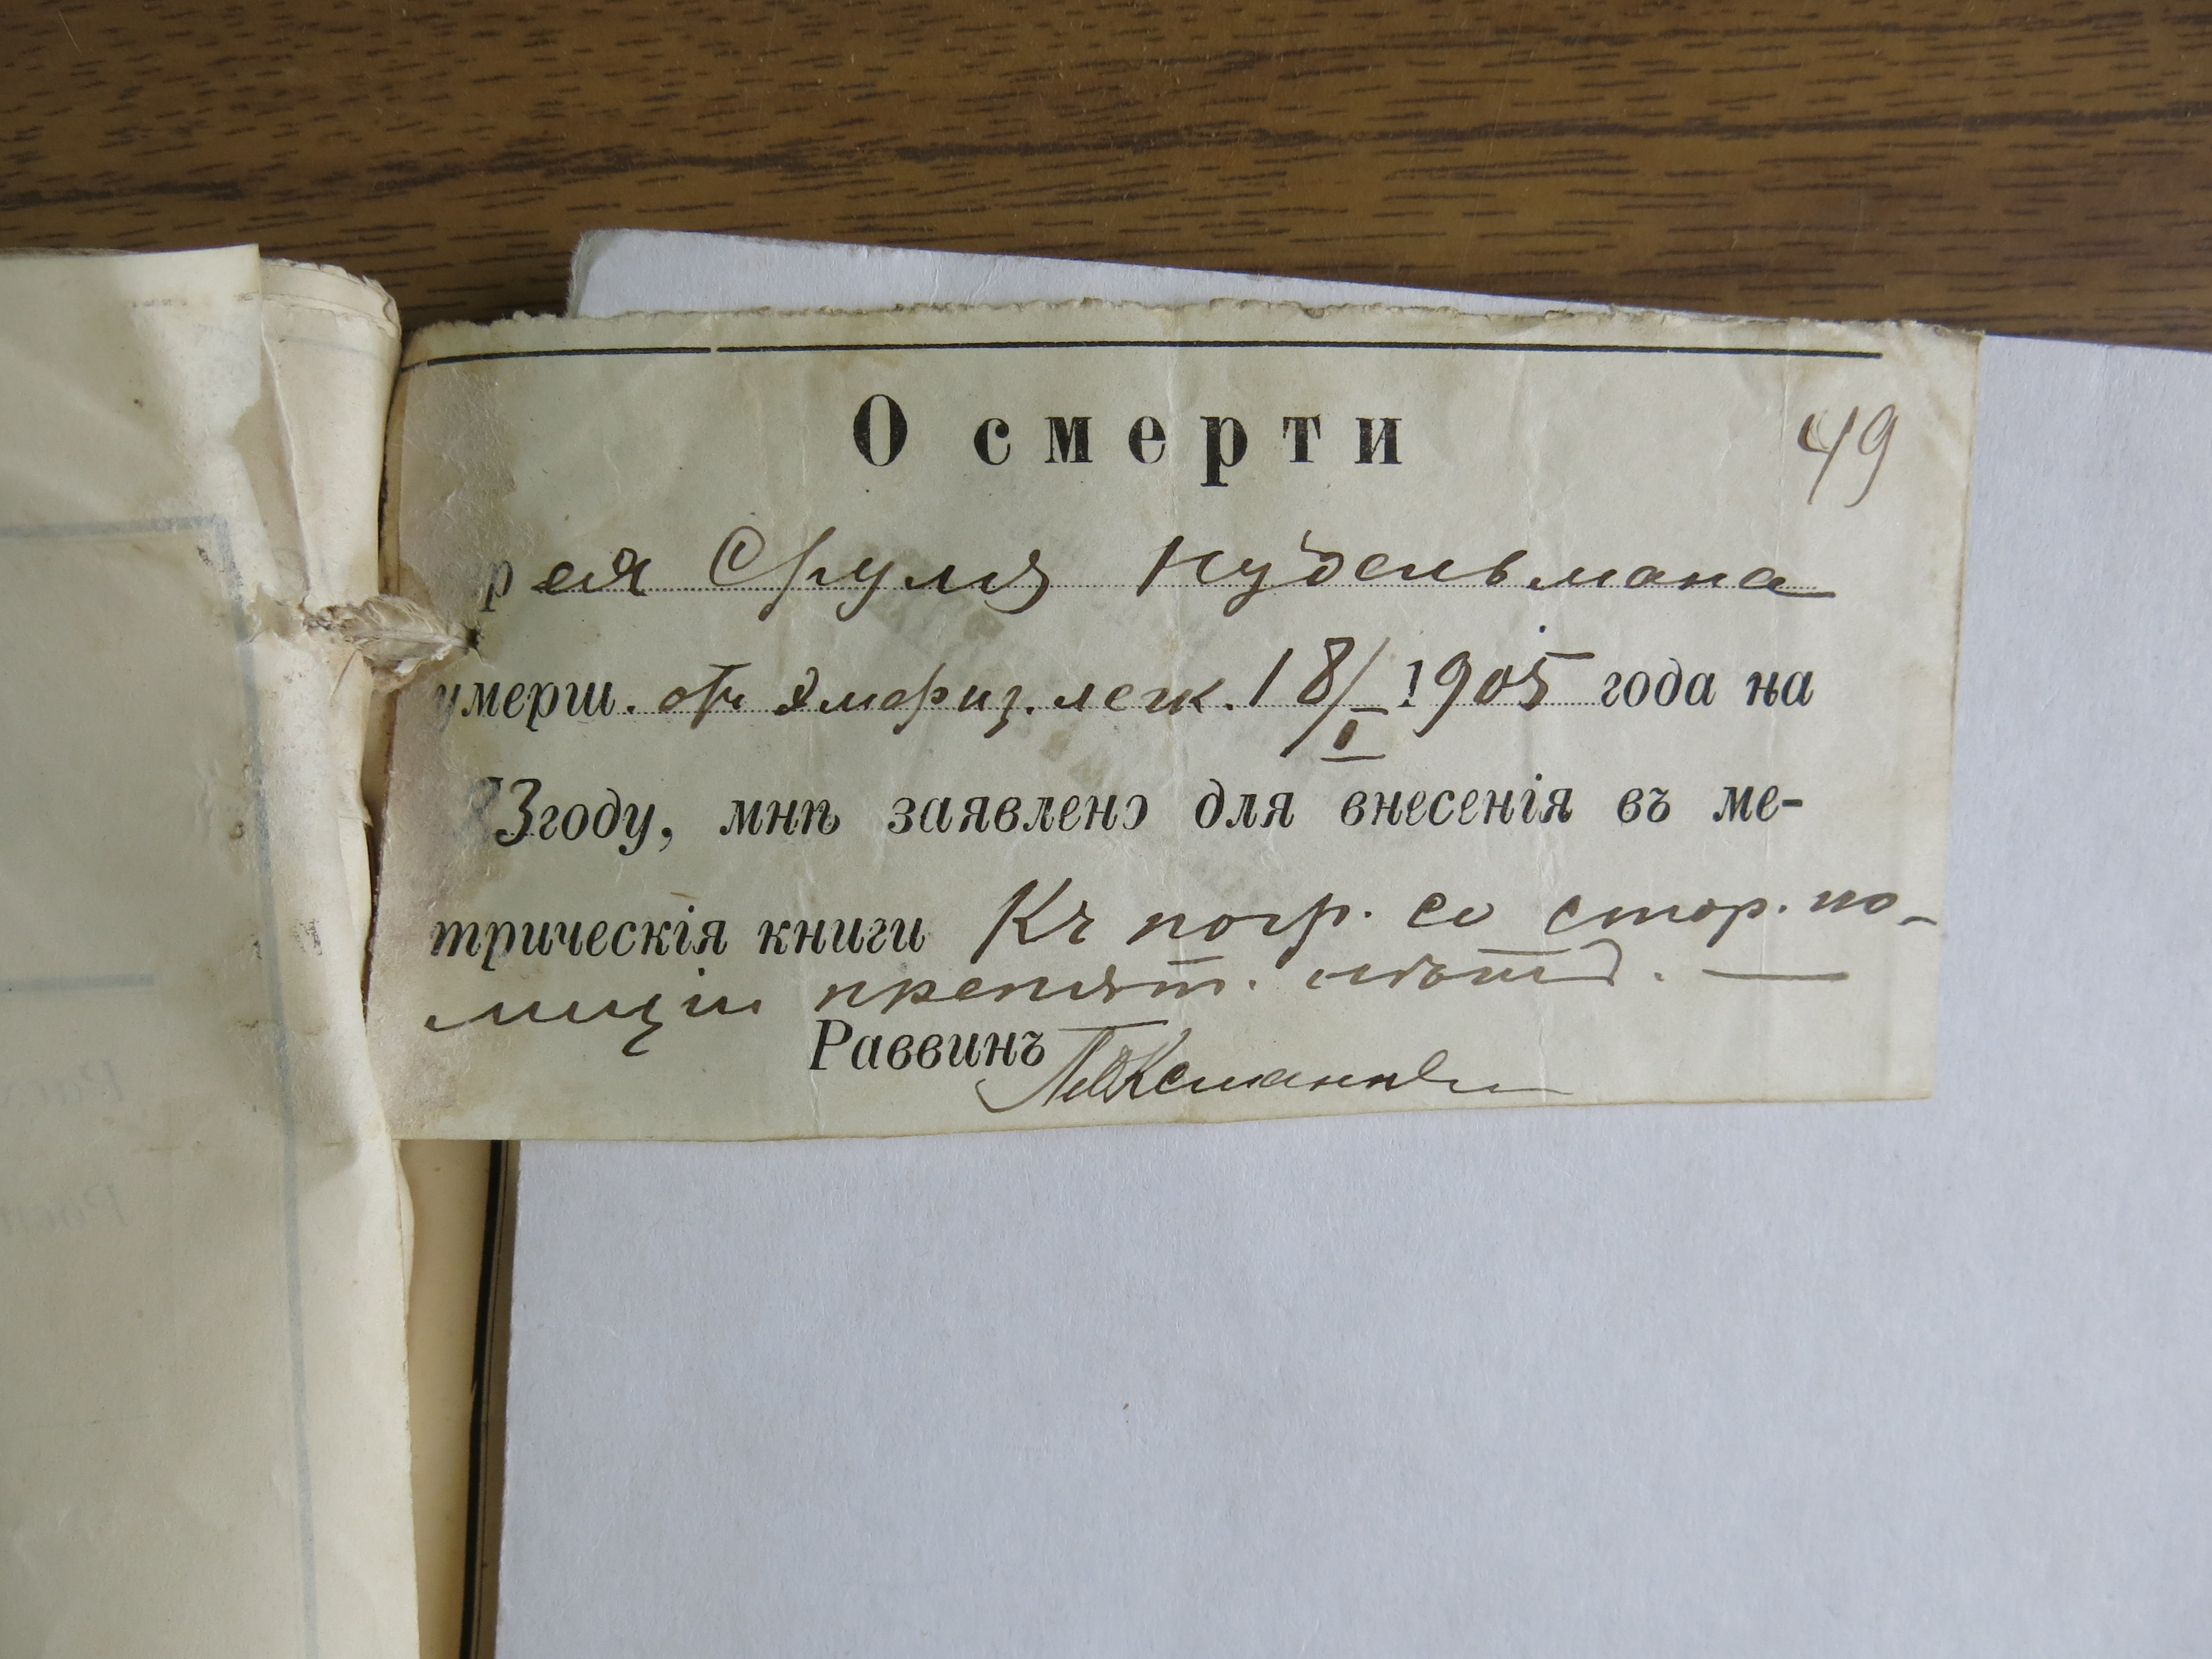 О смерти
49
рея Сруля Нудельмана
умерш. отъ эмфиз. легк. 18/I 1905 года на
83 году, мнѣ заявлено для внесенія въ ме-
трическія книги Къ погр. со стор. по-
лиціи препят. нѣтъ. —
Раввинъ